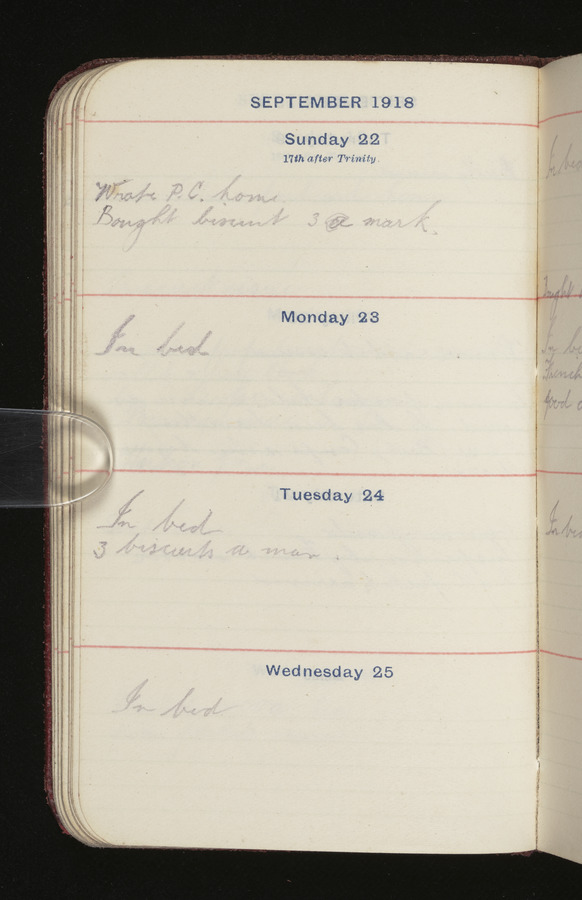 SEPTEMBER 1918
Sunday 22
17th after Trinity.
Wrote P.C. home.
Bought biscuit 3 a mark.
Monday 23
In bed
Tuesday 24
In bed
3 biscuits a man.
Wednesday 25
In bed